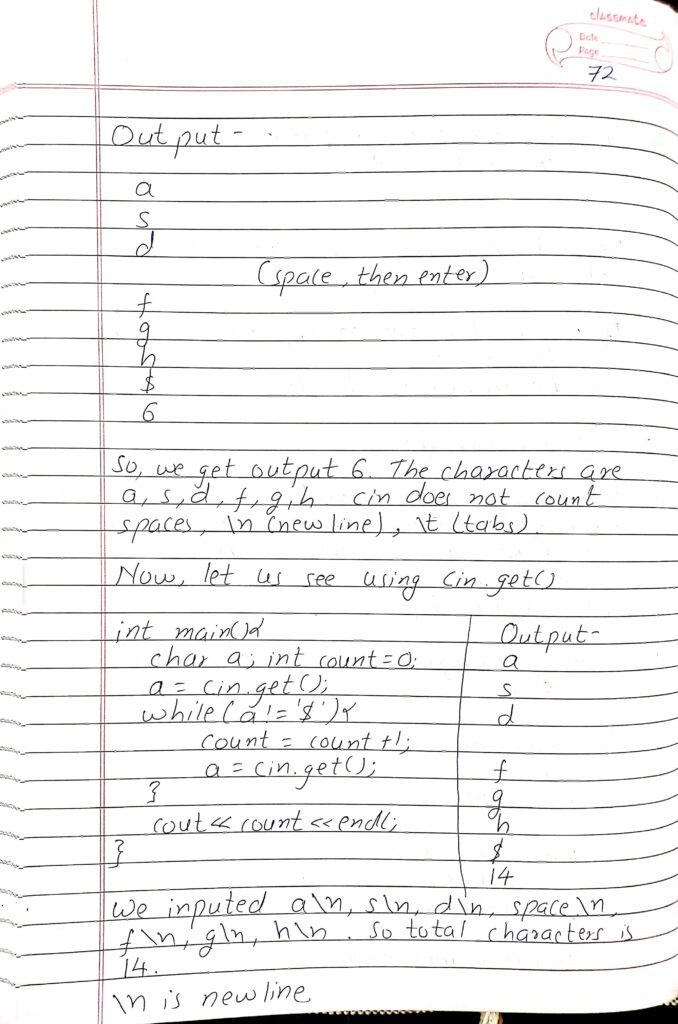 classmate
Date
Page
72
Output -
a
s
d
(space, then enter)
f
g
h
$
6
So, we get output 6. The characters are
a, s, d, f, g, h cin does not count
spaces, \n (new line), \t (tabs).
Now, let us see using cin.get()
int main(){
char a; int count=0;
a = cin.get();
while(a!='$'){
count = count+1;
a = cin.get();
}
cout<<count<<endl;
}
Output-
a
s
d
f
g
h
$
14
We inputed a\n, s\n, d\n, space\n,
f\n, g\n, h\n. So total characters is
14.
\n is newline